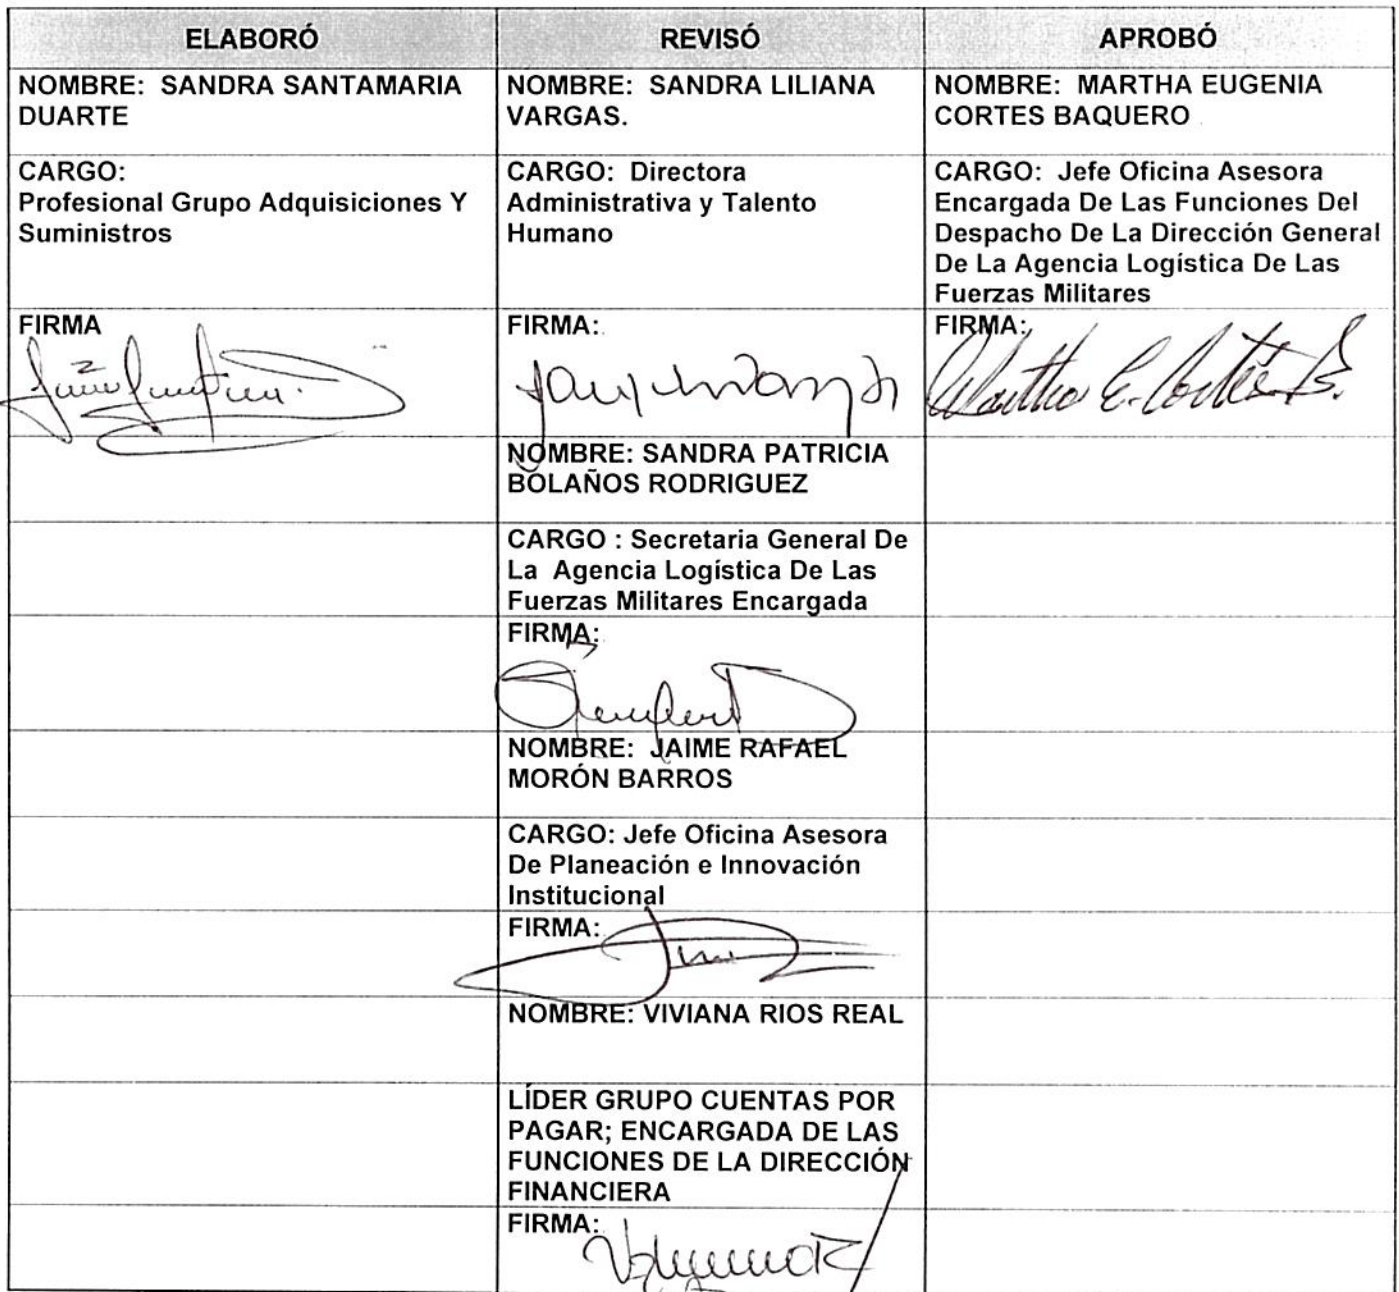 ELABORÓ
REVISÓ
APROBÓ
NOMBRE: SANDRA SANTAMARIA
DUARTE
NOMBRE: SANDRA LILIANA
VARGAS.
NOMBRE: MARTHA EUGENIA
CORTES BAQUERO
CARGO:
Profesional Grupo Adquisiciones Y
Suministros
CARGO: Directora
Administrativa y Talento
Humano
CARGO: Jefe Oficina Asesora
Encargada De Las Funciones Del
Despacho De La Dirección General
De La Agencia Logística De Las
Fuerzas Militares
FIRMA
FIRMA:
FIRMA:
Martha E. Cortés B.
NOMBRE: SANDRA PATRICIA
BOLAÑOS RODRIGUEZ
CARGO : Secretaria General De
La Agencia Logística De Las
Fuerzas Militares Encargada
FIRMA:
NOMBRE: JAIME RAFAEL
MORÓN BARROS
CARGO: Jefe Oficina Asesora
De Planeación e Innovación
Institucional
FIRMA:
NOMBRE: VIVIANA RIOS REAL
LÍDER GRUPO CUENTAS POR
PAGAR; ENCARGADA DE LAS
FUNCIONES DE LA DIRECCIÓN
FINANCIERA
FIRMA: